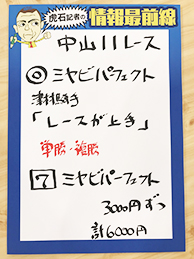 虎石記者の
情報最前線
中山11レース
◎ミヤビパーフェクト
津村騎手
「レースが上手」
単勝・複勝
7 ミヤビパーフェクト
3000円ずつ
計6000円